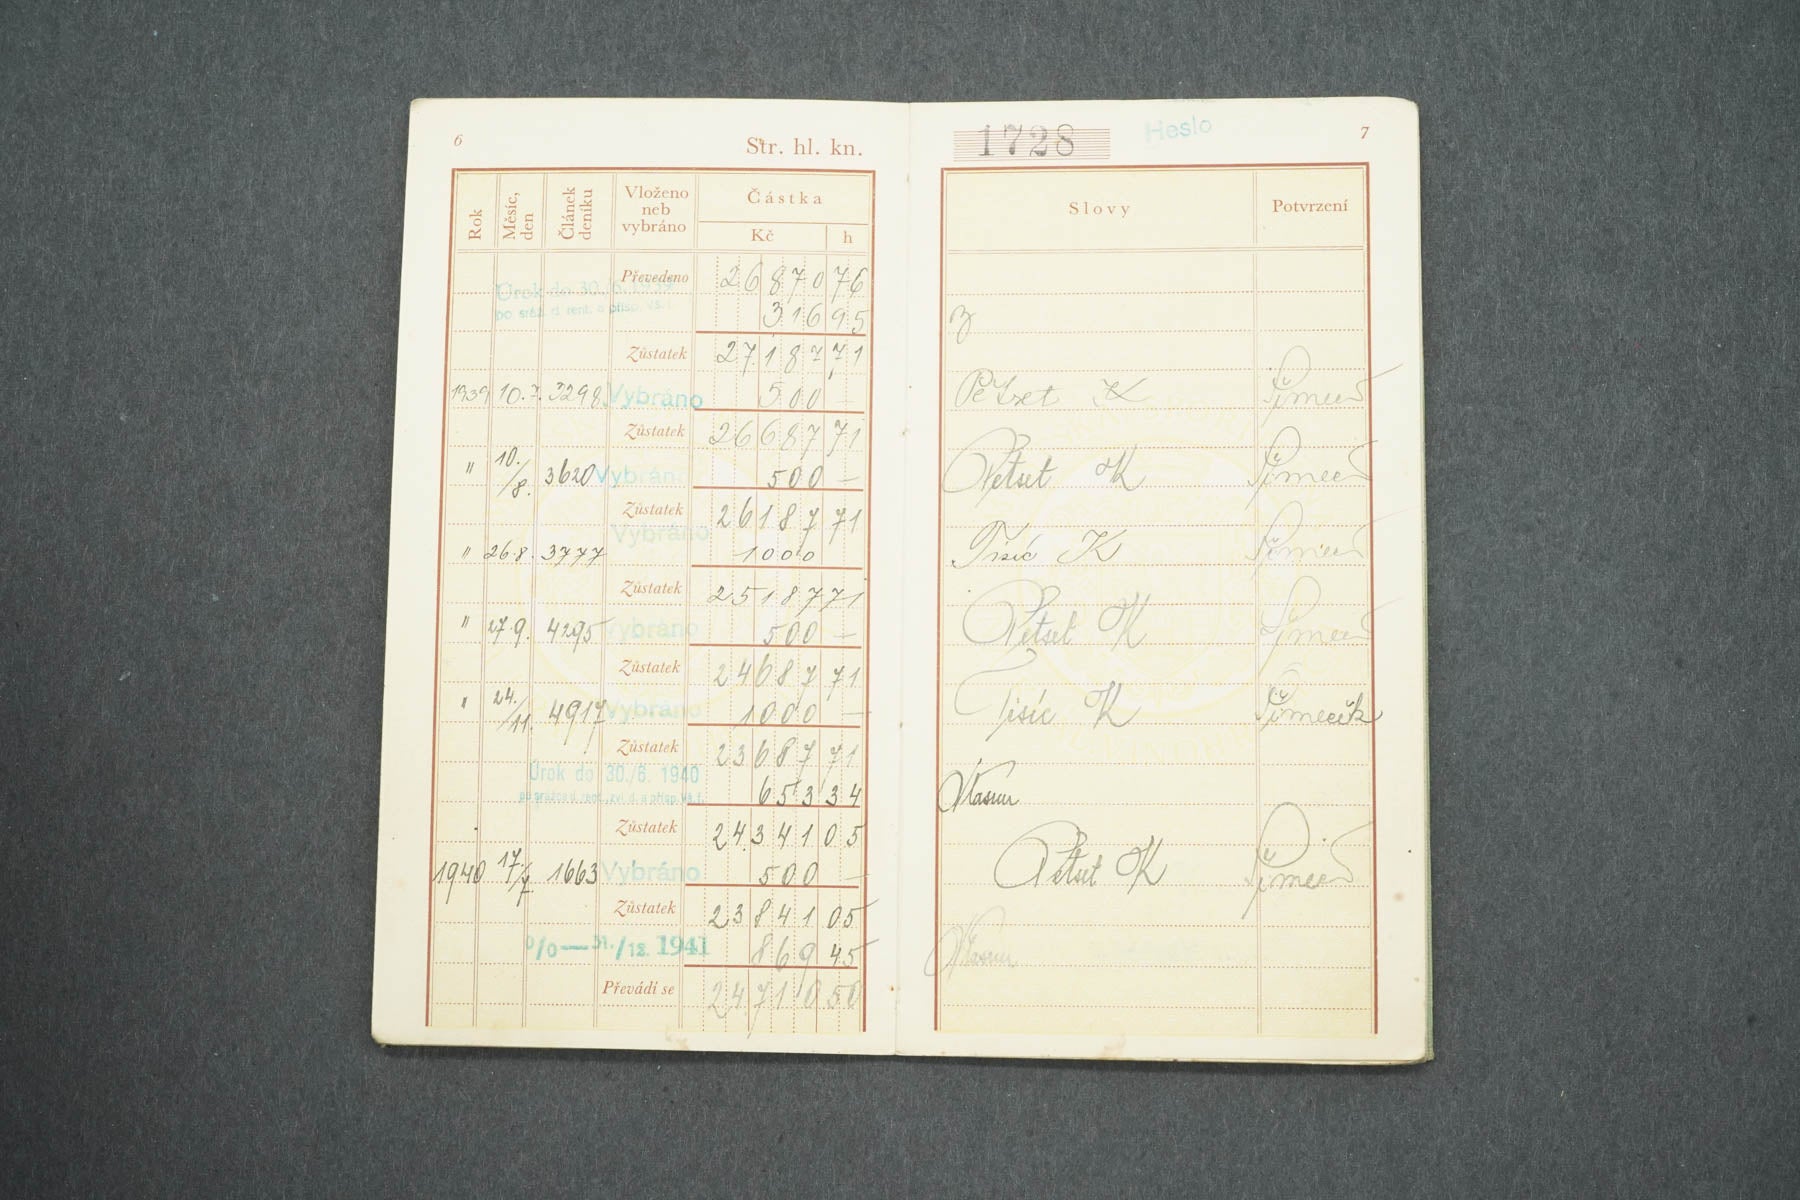 6
Str. hl. kn.
Rok
Měsíc, den
Článek deníku
Vloženo neb vybráno
Částka
Kč
h
Převedeno 26870 76
Úrok do 30./6. 1939
po sráž. d. rent. a přísp. vš. f. 316 95
Zůstatek 27187 71
1939 10.7. 3298 Vybráno 500 —
Zůstatek 26687 71
" 10./8. 3620 Vybráno 500 —
Zůstatek 26187 71
" 26.8. 3777 Vybráno 1000
Zůstatek 25187 71
" 27.9. 4295 Vybráno 500 —
Zůstatek 24687 71
" 24./11. 4917 Vybráno 1000 —
Zůstatek 23687 71
Úrok do 30./6. 1940
653 34
Zůstatek 24341 05
1940 17./7. 1663 Vybráno 500 —
Zůstatek 23841 05
0/0 — 31./12. 1941 869 45
Převádí se 24710 50
1728
Heslo
7
Slovy
Potvrzení
Pětset K
Pětset K
Tisíc K
Pětset K
Tisíc K Šimeček
Pětset K